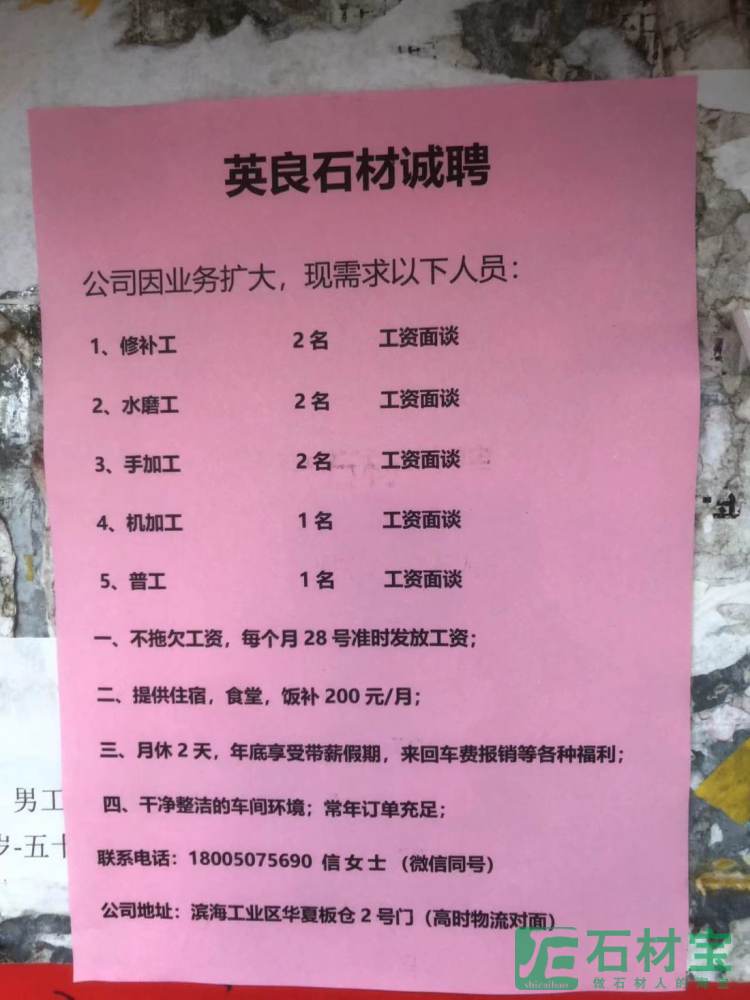 英良石材诚聘
公司因业务扩大，现需求以下人员：
1、修补工 2名 工资面谈
2、水磨工 2名 工资面谈
3、手加工 2名 工资面谈
4、机加工 1名 工资面谈
5、普工 1名 工资面谈
一、不拖欠工资，每个月28号准时发放工资；
二、提供住宿，食堂，饭补200元/月；
三、月休2天，年底享受带薪假期，来回车费报销等各种福利；
四、干净整洁的车间环境；常年订单充足；
男工
岁-五十
联系电话：18005075690 信女士（微信同号）
公司地址：滨海工业区华夏板仓2号门（高时物流对面）
石材宝
shicaibao
做石材人的